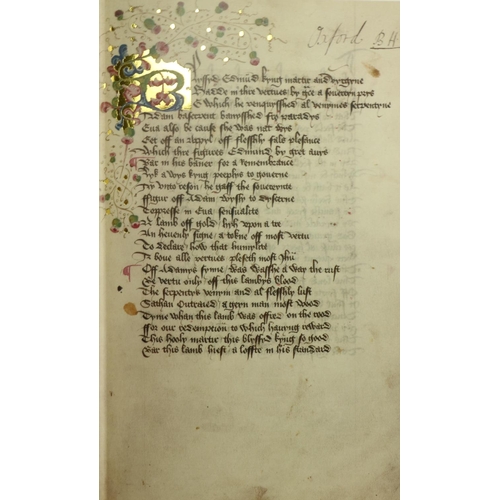 Oxford B H
Blyssyd Edmund kyng martir and vyrgyne
Hadde in thre vertues by gre a souereyn prys
Be which he venqwysshed al venymes serpentyne
Adam baserpent banysshed fro paradys
Eua also be cause she was nat wys
Eet off an appyl off flesshly fals plesance
Which thre figures Edmund by gret auys
Bar in his baner for a remembrance
Lyk a wys kyng peeplys to gouerne
Ay unto reson he gaff the souereynte
ffigur off Adam wysly to dyscerne
Toppresse in Eua sensualite
A lamb off gold hyh upon a tre
An heuenly signe a tokne off most vertu
To declare how that humylite
A boue alle vertues pleseth most Jhu
Off Adamys synne was wasshe a way the rust
Be vertu only off this lambys blood
The serpentys venym and al flesshly lust
Sathan outraied a geyn man most wood
Tyme whan this lamb was offred on the rood
ffor our redempcion to which hauyng reward
This hooly martir this blyssyd kyng so good
Bar this lamb hiest a loffte in his standard